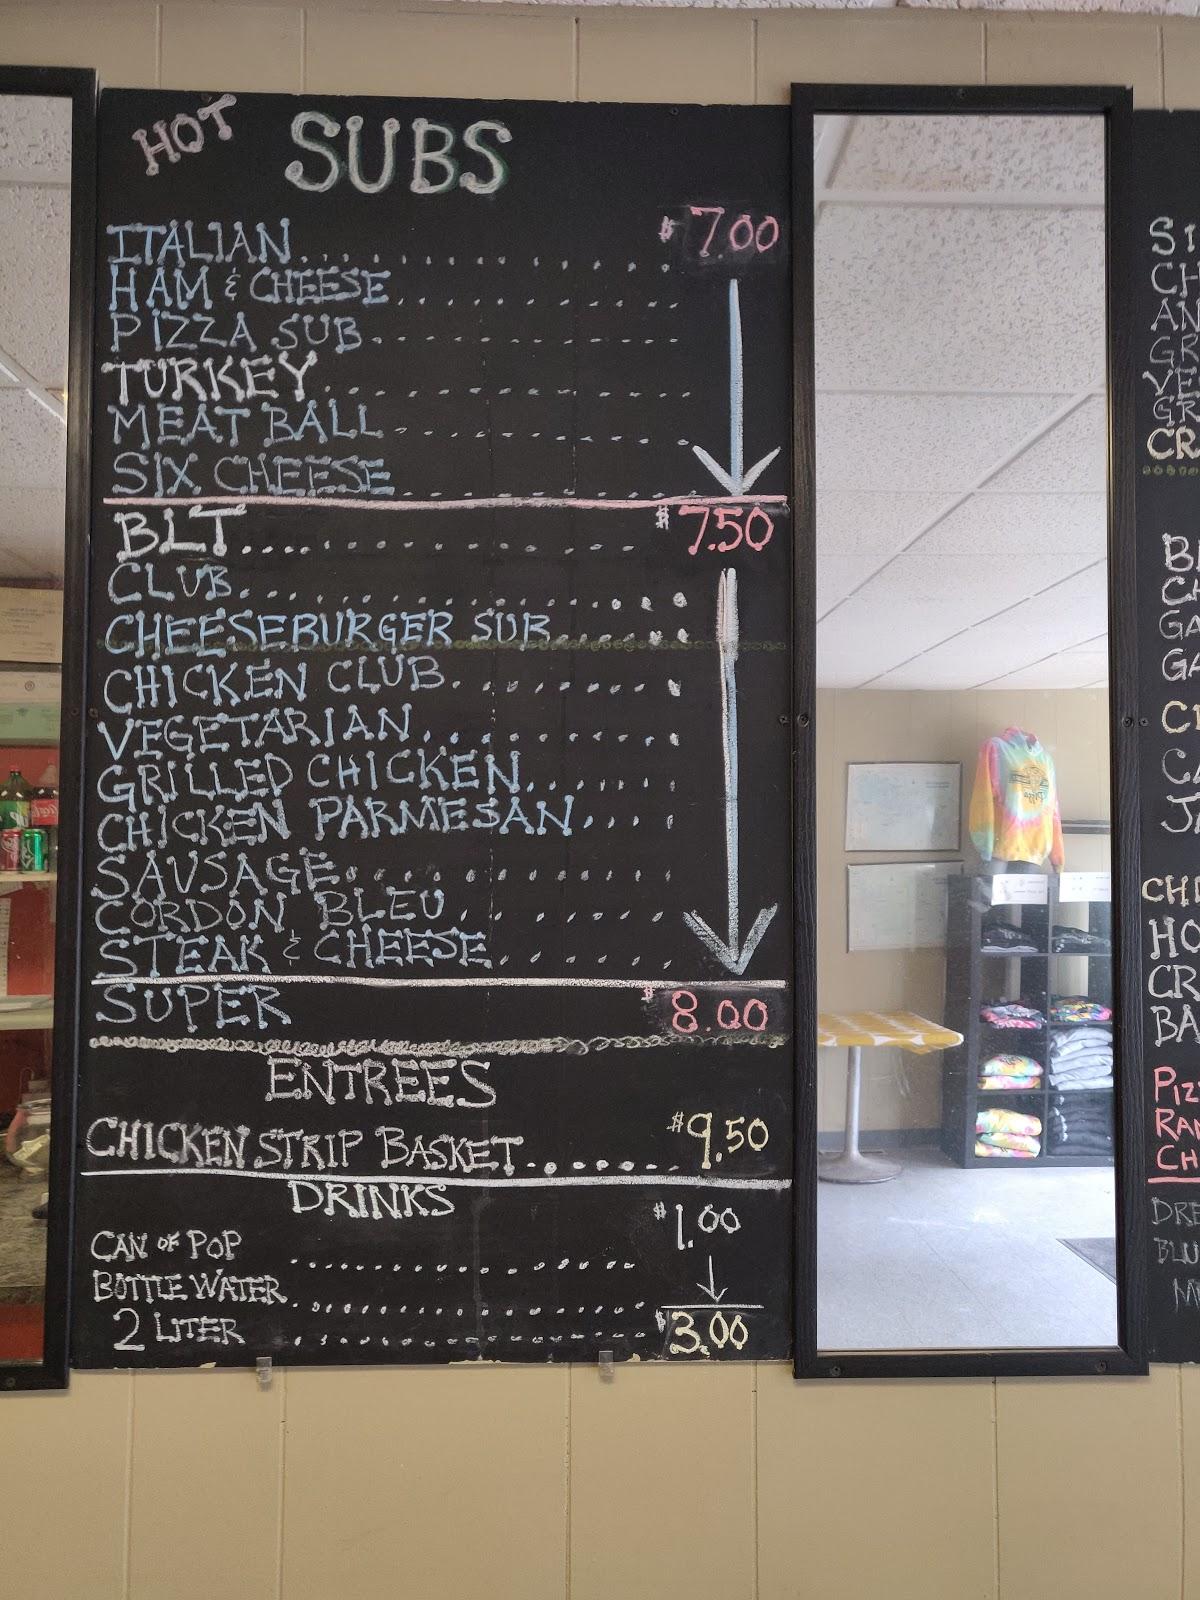 HOT SUBS
ITALIAN.................. $7.00
HAM & CHEESE..........
PIZZA SUB..........
TURKEY..........
MEAT BALL..........
SIX CHEESE..........
BLT.......... $7.50
CLUB..........
CHEESEBURGER SUB.....
CHICKEN CLUB..........
VEGETARIAN..........
GRILLED CHICKEN.....
CHICKEN PARMESAN....
SAUSAGE..........
CORDON BLEU.......
STEAK & CHEESE.....
SUPER $8.00
ENTREES
CHICKEN STRIP BASKET....... $9.50
DRINKS
CAN OF POP .......... $1.00
BOTTLE WATER..........
2 LITER .......... $3.00